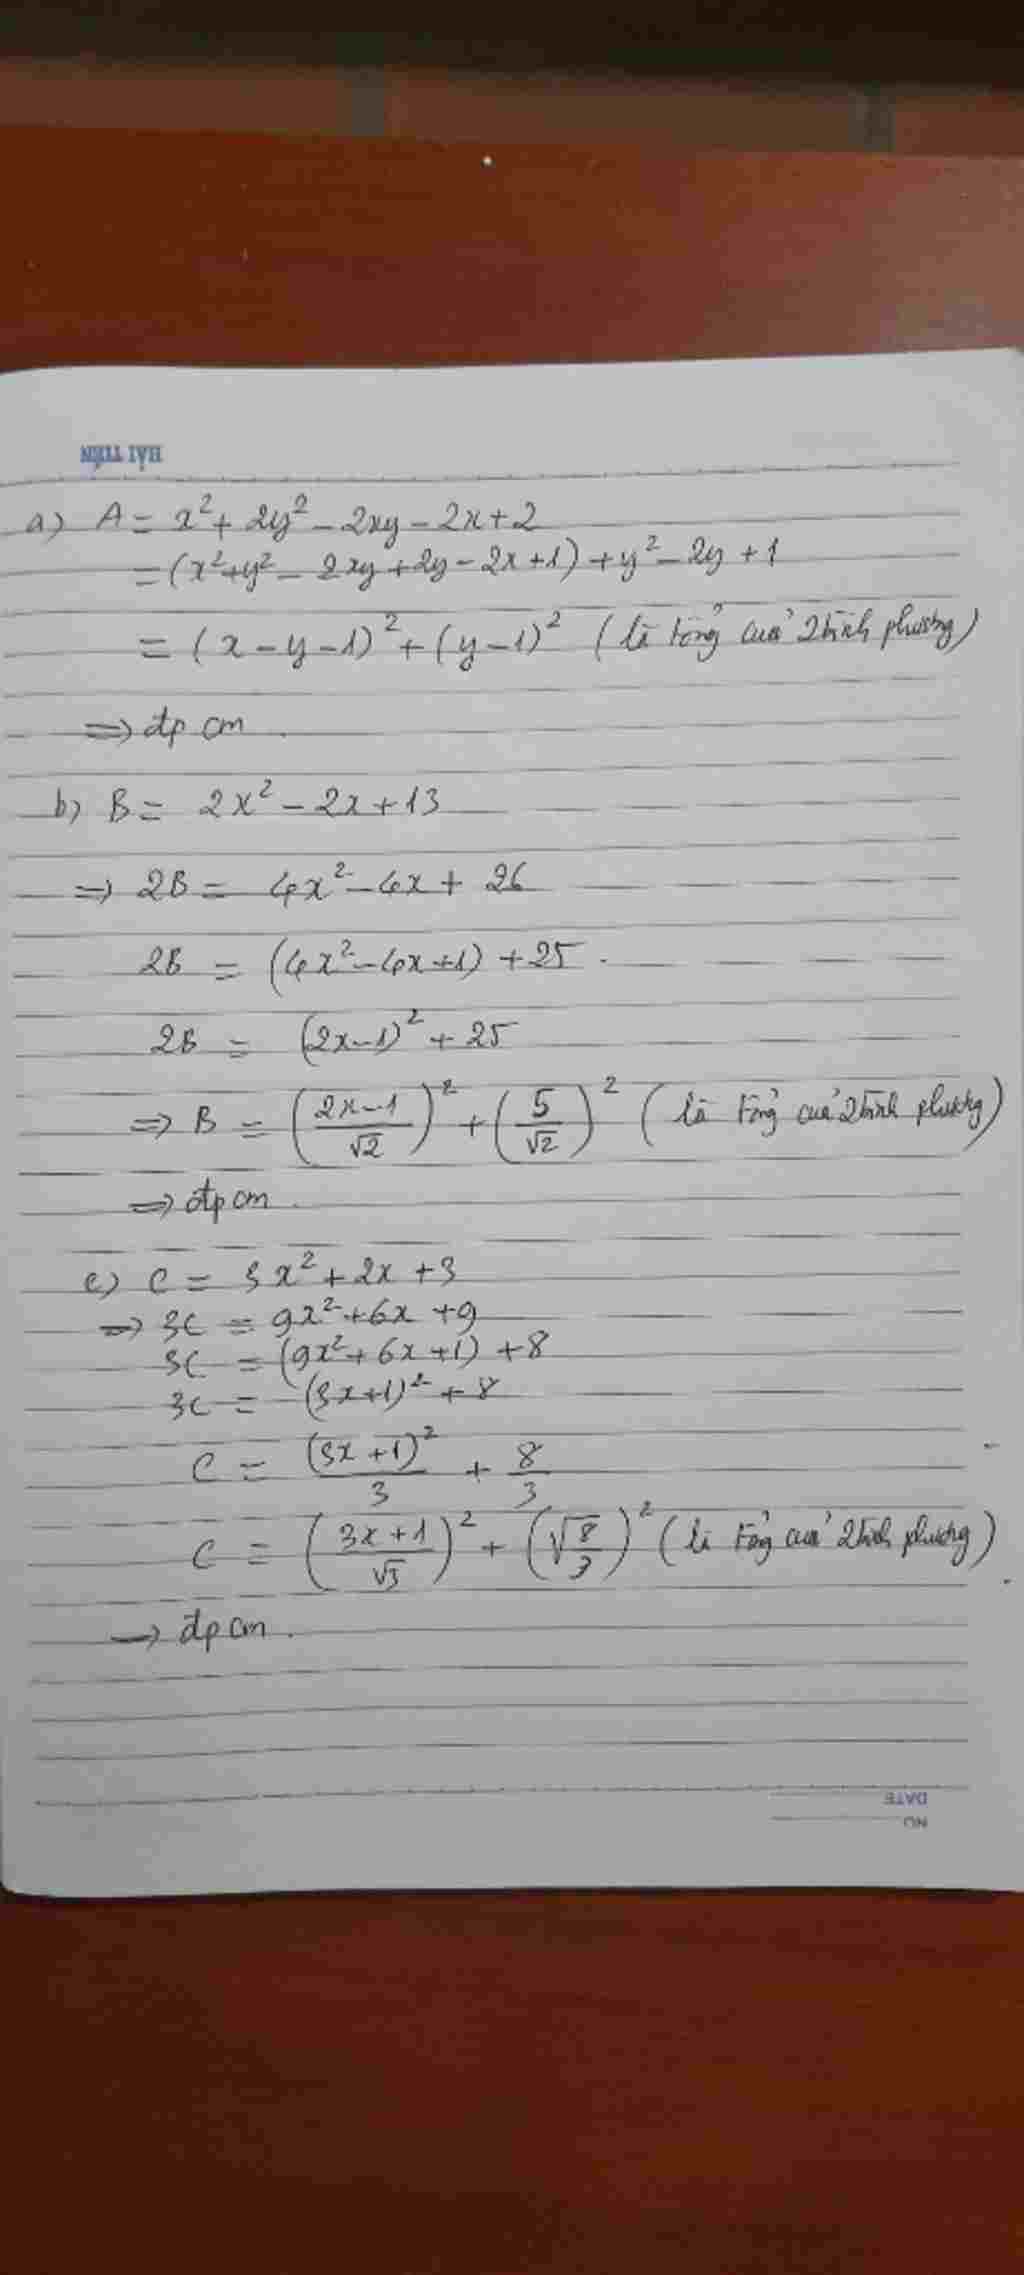 HẢI TIẾN
a) A = x² + 2y² - 2xy - 2x + 2
= (x² + y² - 2xy + 2y - 2x + 1) + y² - 2y + 1
= (x - y - 1)² + (y - 1)² (là tổng của 2 bình phương)
=> đpcm.
b) B = 2x² - 2x + 13
=> 2B = 4x² - 4x + 26
2B = (4x² - 4x + 1) + 25.
2B = (2x - 1)² + 25
=> B = ((2x - 1)/√2)² + (5/√2)² (là tổng của 2 bình phương)
=> đpcm.
c) C = 3x² + 2x + 3
=> 3C = 9x² + 6x + 9
3C = (9x² + 6x + 1) + 8
3C = (3x + 1)² + 8
C = (3x + 1)²/3 + 8/3
C = ((3x + 1)/√3)² + (√(8/3))² (là tổng của 2 bình phương)
=> đpcm.
DATE
NO